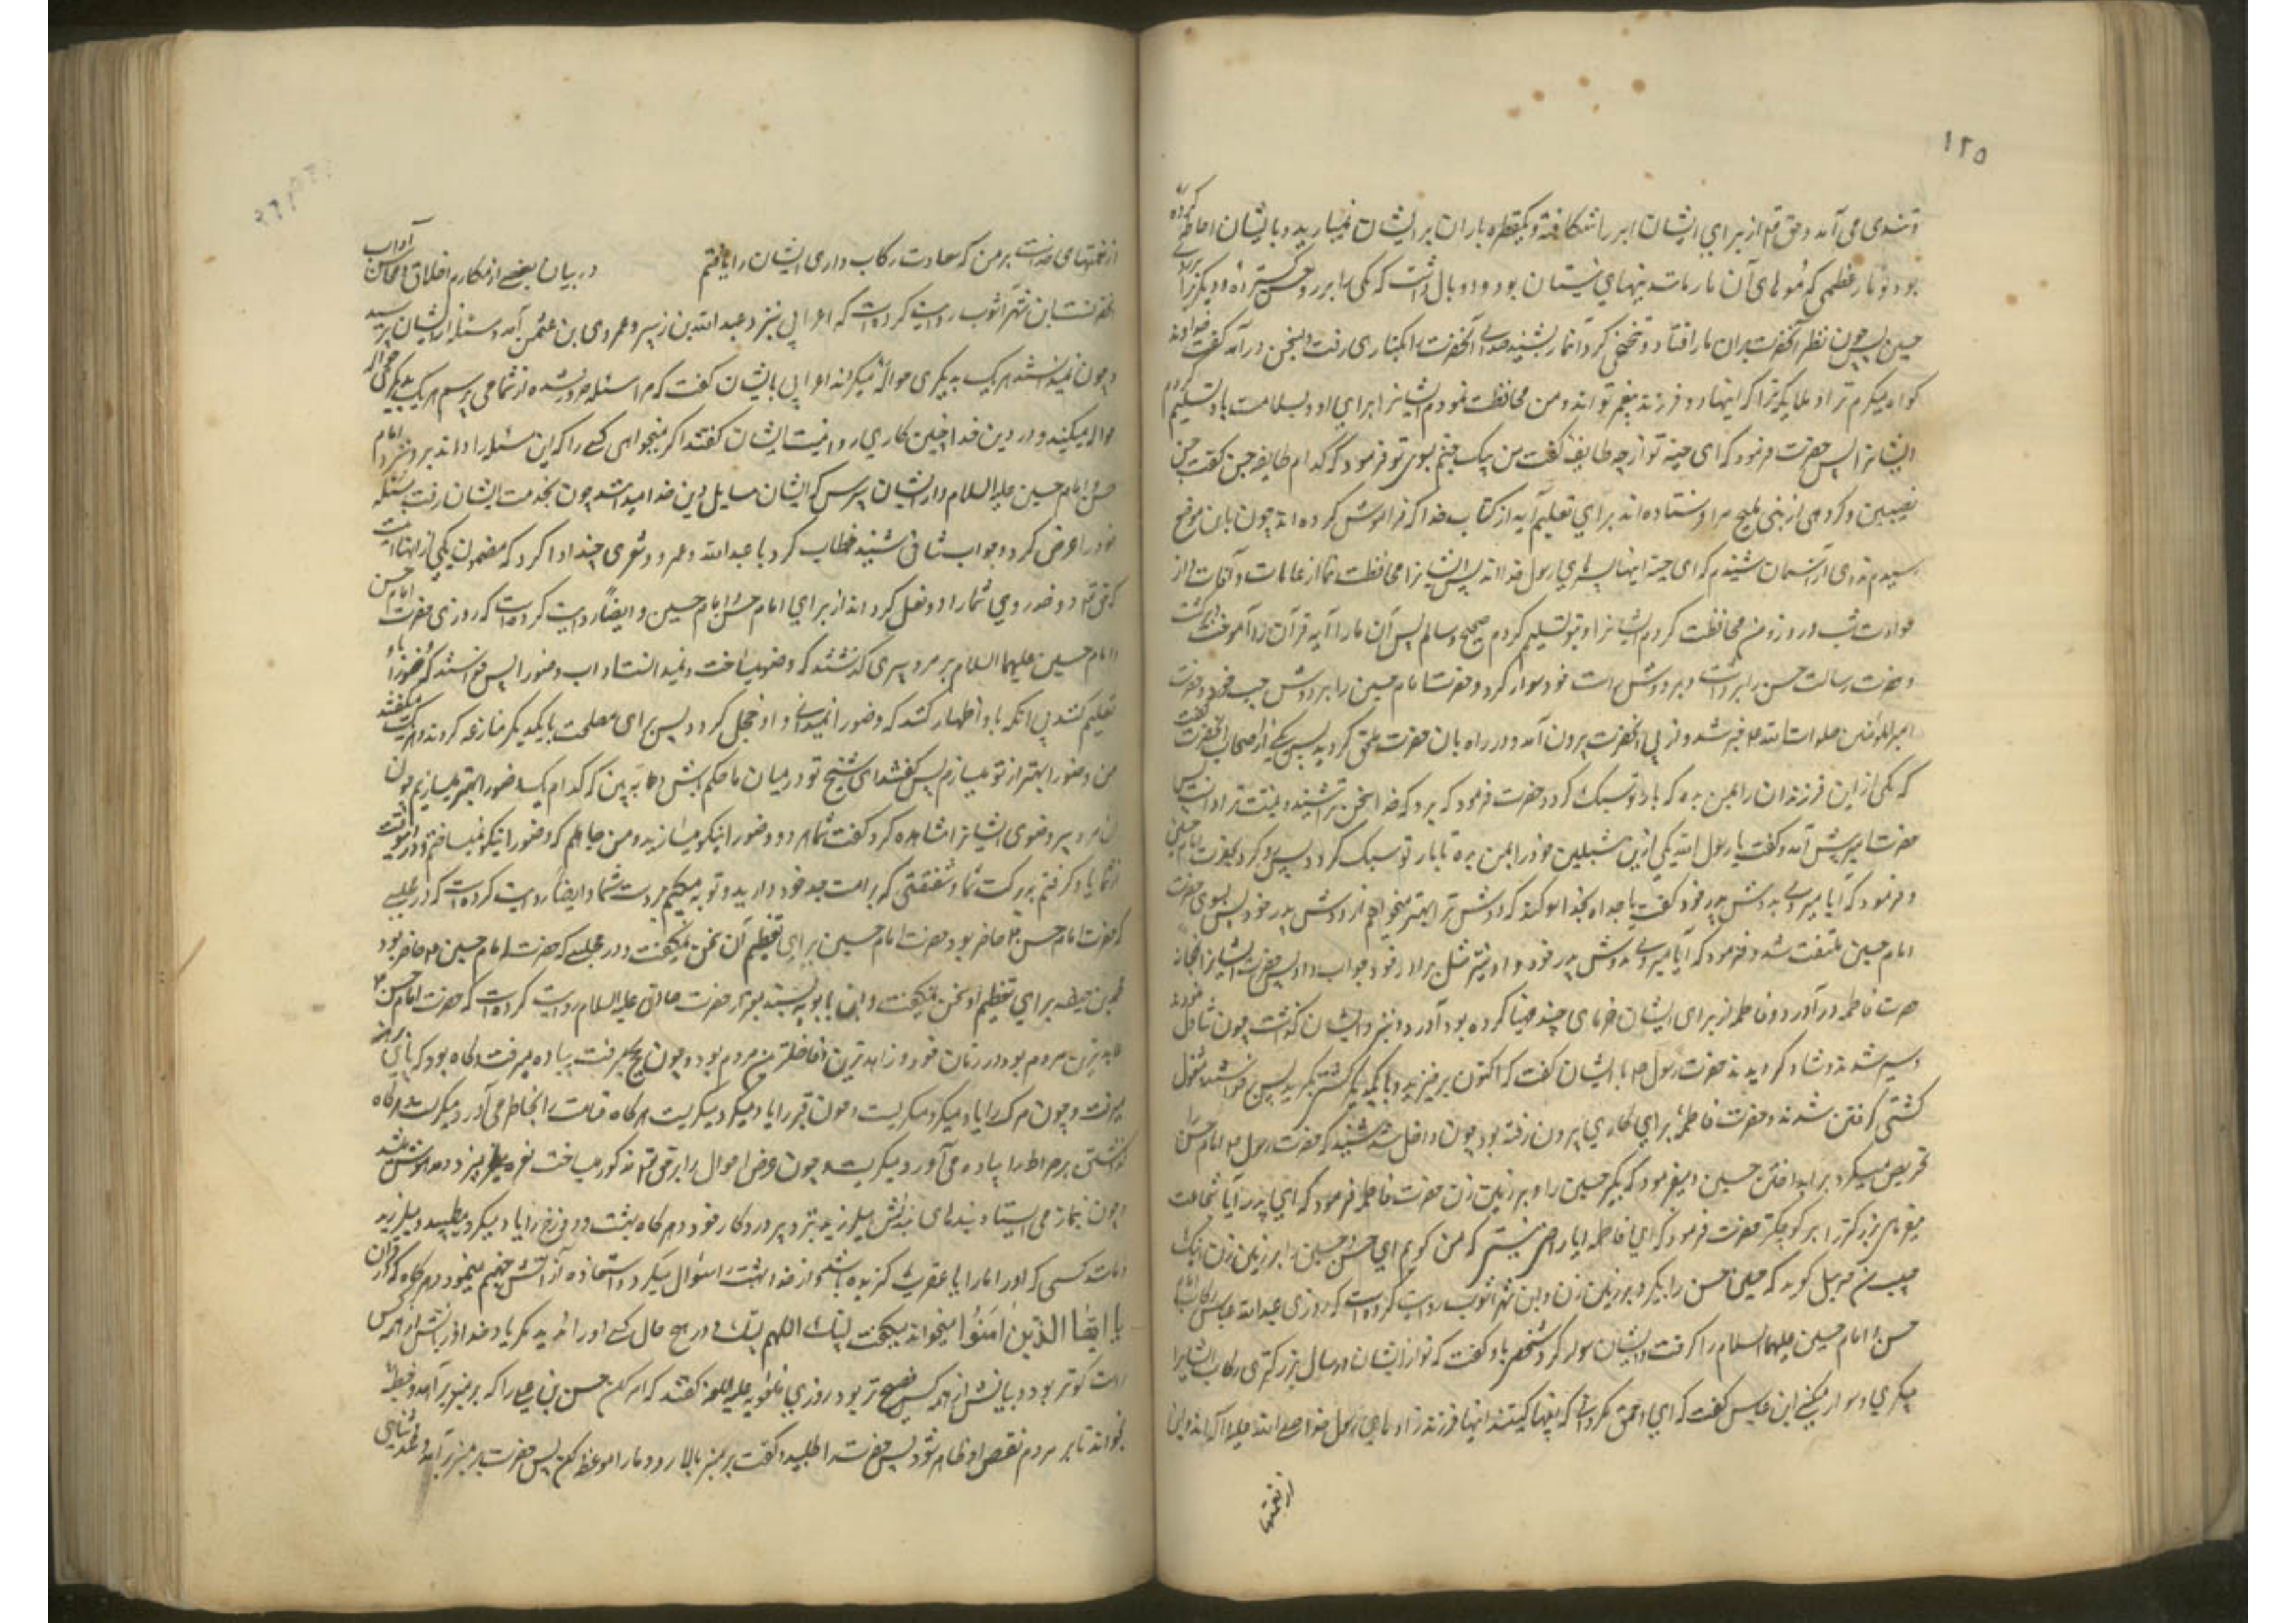 ١٢٥
و تندی می آمد و حق تع از برای ایشان ابر را شکافته و یکقطره باران بر ایشان نمیبارید و با ایشان احاطه کرده
بود و مار عظیمی که موهای آن مار مانند نیهای نیستان بود و دو بال داشت که یکی را بر روی حسن گسترده و دیگری را بر
حسین پس چون نظر آنحضرت بران مار افتاد و تنحنحی کرد آنمار بشنید صدای آنحضرت را بکناری رفت و بسخن درآمد گفت خداوندا
گواه میگیرم ترا و ملایکه ترا که اینها دو فرزند پیغمبر تواند و من محافظت نمودم ایشانرا برای او و بسلامت باو تسلیم کردم
ایشانرا پس حضرت فرمود که ای حیه تو از چه طایفه گفت من پیک جنم بسوی تو فرمود که کدام طایفه جن گفت جن
نصیبین و گروهی از بنی ملیح مرا فرستاده اند برای تعلیم آیه از کتاب خدا که فراموش کرده اند چون باین موضع
رسیدم ندای از آسمان شنیدم که ای حیه اینها پسرهای رسول خدا اند پس ایشانرا محافظت نما از عاهات و آفات و از
حوادث شب و روز و من محافظت کردم ایشانرا و بتو تسلیم کردم صحیح و سالم پس آن مار آیه قرآن را آموخت و برگشت
و حضرت رسالت حسن را برداشت و بر دوش راست خود سوار کرد و حضرت امام حسین را بر دوش چپ خود و حضرت
امیرالمؤمنین صلوات الله علیه خبر شد و از پی آنحضرت بیرون آمد و در راه بان حضرت ملحق گردید پس یکی از صحابه آنحضرت گفت
که یکی از این فرزندان را بمن بده که بار تو سبک گردد حضرت فرمود که برو که خدا سخن ترا شنید و نیت ترا دانست پس
حضرت امیر پیش آمد و گفت یا رسول الله یکی ازین شبلین خود را بمن بده تا بار تو سبک گردد پس رو کرد بحضرت امام حسن
و فرمود که آیا میروی بدوش پدر خود گفت یا جداه بخدا سوگند که دوش ترا بهتر میخواهم از دوش پدر خود پس بسوی حضرت
امام حسین ملتفت شد و فرمود که آیا میروی بدوش پدر خود و او نیز مثل برادر خود جواب داد پس حضرت ایشانرا بخانه
حضرت فاطمه درآورد و فاطمه از برای ایشان خرمای چند مهیا کرده بود آورد و نزد ایشان گذاشت چون تناول نمودند
و سیر شدند و شاد گردیدند حضرت رسول ص با ایشان گفت که اکنون برخیزید و با یکدیگر کشتی بگیرید پس برخواستند و مشغول
کشتی گرفتن شدند و حضرت فاطمه برای کاری بیرون رفته بود چون داخل شد شنید که حضرت رسول ص امام حسن را
تحریص میکرد بر انداختن حسین و میفرمود که بگیر حسین را و بر زمین زن حضرت فاطمه فرمود که ای پدر آیا شجاعت
میفرمائی بزرگتر را بر کوچکتر حضرت فرمود که ای فاطمه آیا راضی نیستی که من گویم ای حسن حسین را بر زمین زن و اینک
حبیب من جبرئیل گوید که حسین حسن را بگیر و بر زمین زن و ابن شهر آشوب روایت کرده است که روزی عبدالله عباس رکاب امام
حسن و امام حسین علیهما السلام را گرفت و ایشان سوار کرد شخصی باو گفت که تو از ایشان در سال بزرگتری رکاب ایشانرا
میگیری و سوار میکنی ابن عباس گفت که ای احمق مگر دانی که اینها کیستند اینها فرزندزاده های رسول خدا صلی الله علیه و آله اند و این
از نعمتها
از نعمتهای خداست بر من که سعادت رکاب داری ایشان را یافتم در بیان بعضی از مکارم اخلاق و محاسن آداب
آنحضرتست ابن شهر آشوب روایت کرده است که اعرابی بنزد عبدالله بن زبیر و عمرو بن عثمن آمد و مسئله از ایشان پرسید
و چون نمیدانستند هریک بدیگری حواله میکردند اعرابی با ایشان گفت که مرا مسئله ضرور شده از شما می پرسم هریک بدیگری حواله
حواله میکنید و در دین خدا چنین کاری روا نیست ایشان گفتند اگر میخواهی کسی را که این مسئله را داند برو نزد امام
حسن و امام حسین علیه السلام و از ایشان بپرس که ایشان مسایل دین خدا میدانند چون بخدمت ایشان رفت مسئله
خود را عرض کرد و جواب شافی شنید خطاب کرد با عبدالله و عمرو و شعری چند ادا کرد که مضمون یکی از انها اینست
که حق تع دو خد روی شما را دو نعل کرداند از برای امام حسن و امام حسین و ایضاً روایت کرده است که روزی حضرت امام حسن
و امام حسین علیهما السلام بر مرد پیری گذشتند که وضو میساخت و نمیدانست آداب وضو را پس خواستند که وضو را باو
تعلیم کنند بی آنکه باو اظهار کنند که وضو را نمیدانی و او خجل گردد پس برای مصلحت با یکدیگر منازعه کردند و هریک میگفتند
من وضو را بهتر از تو میسازم پس گفتند ای شیخ تو در میان ما حکم باش و به بین که کدام یک وضو را بهتر میسازیم چون
آن مرد پیر وضوی ایشانرا مشاهده کرد گفت شما هر دو وضو را نیکو میسازید و من جاهلم که وضو را نیکو نمیساختم و در این وقت
از شما یاد گرفتم ببرکت شما و شفقتی که بر امت جد خود دارید و توبه میکنم بدست شما و ایضاً روایت کرده است که در مجلسی
که حضرت امام حسن ع حاضر بود حضرت امام حسین برای تعظیم آن سخن نمیگفت و در مجلسی که حضرت امام حسین ع حاضر بود
محمد بن حنفیه برای تعظیم او سخن نمیگفت و ابن بابویه بسند معتبر از حضرت صادق علیه السلام روایت کرده است که حضرت امام حسن ع
عابدترین مردم بود در زمان خود و زاهدترین و فاضلترین مردم بود و چون بحج میرفت پیاده میرفت و گاه بود که با پای برهنه
میرفت و چون مرک را یاد میکرد میگریست و چون قبر را یاد میکرد میگریست و هرگاه قیامت را بخاطر می آورد میگریست و هرگاه
گذشتن بر صراط را بیاد می آورد میگریست و چون عرض احوال را بر حق تع مذکور میساخت نعره میزد و مدهوش میشد
و چون بنماز می ایستاد بندهای بدنش میلرزید نزد پروردگار خود و هرگاه بهشت و دوزخ را یاد میکرد میطپید و میلرزید
مانند کسی که او را مار یا عقرب گزیده باشد و از خدا بهشت را سؤال میکرد و استعاذه از آتش جهنم مینمود و هرگاه که در قرآن
یا ایها الذین امنوا میخواند میگفت لبیک اللهم لبیک و در هیچ حال کسی او را ندید مگر یاد خدا و زبانش از همه کس
راست گوتر بود و بیانش از همه کس فصیح تر بود روزی بمعویه علیه اللعنه گفتند که امر کن حسن بن علی را که بر منبر برآمد و خطبه
بخواند تا بر مردم نقص او ظاهر شود پس حضرت را طلبید و گفت بر منبر بالا رو و ما را موعظه کن پس حضرت بر منبر برآمد و حمد و ثنای الهی